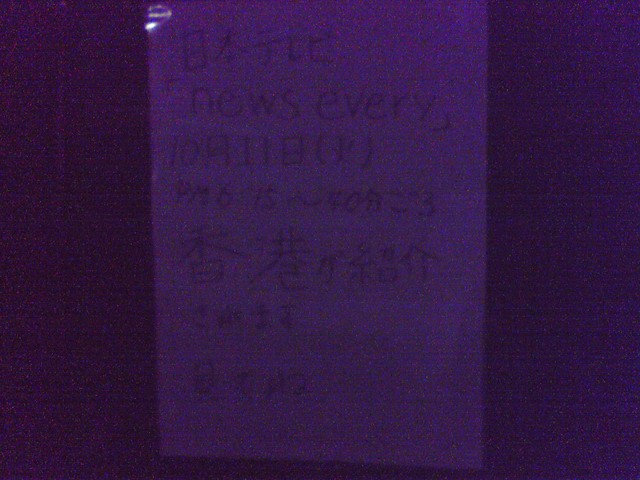 日本テレビ
「news every」
10月11日(火)
PM6:15〜40分ごろ
香港が紹介
されます
見てね